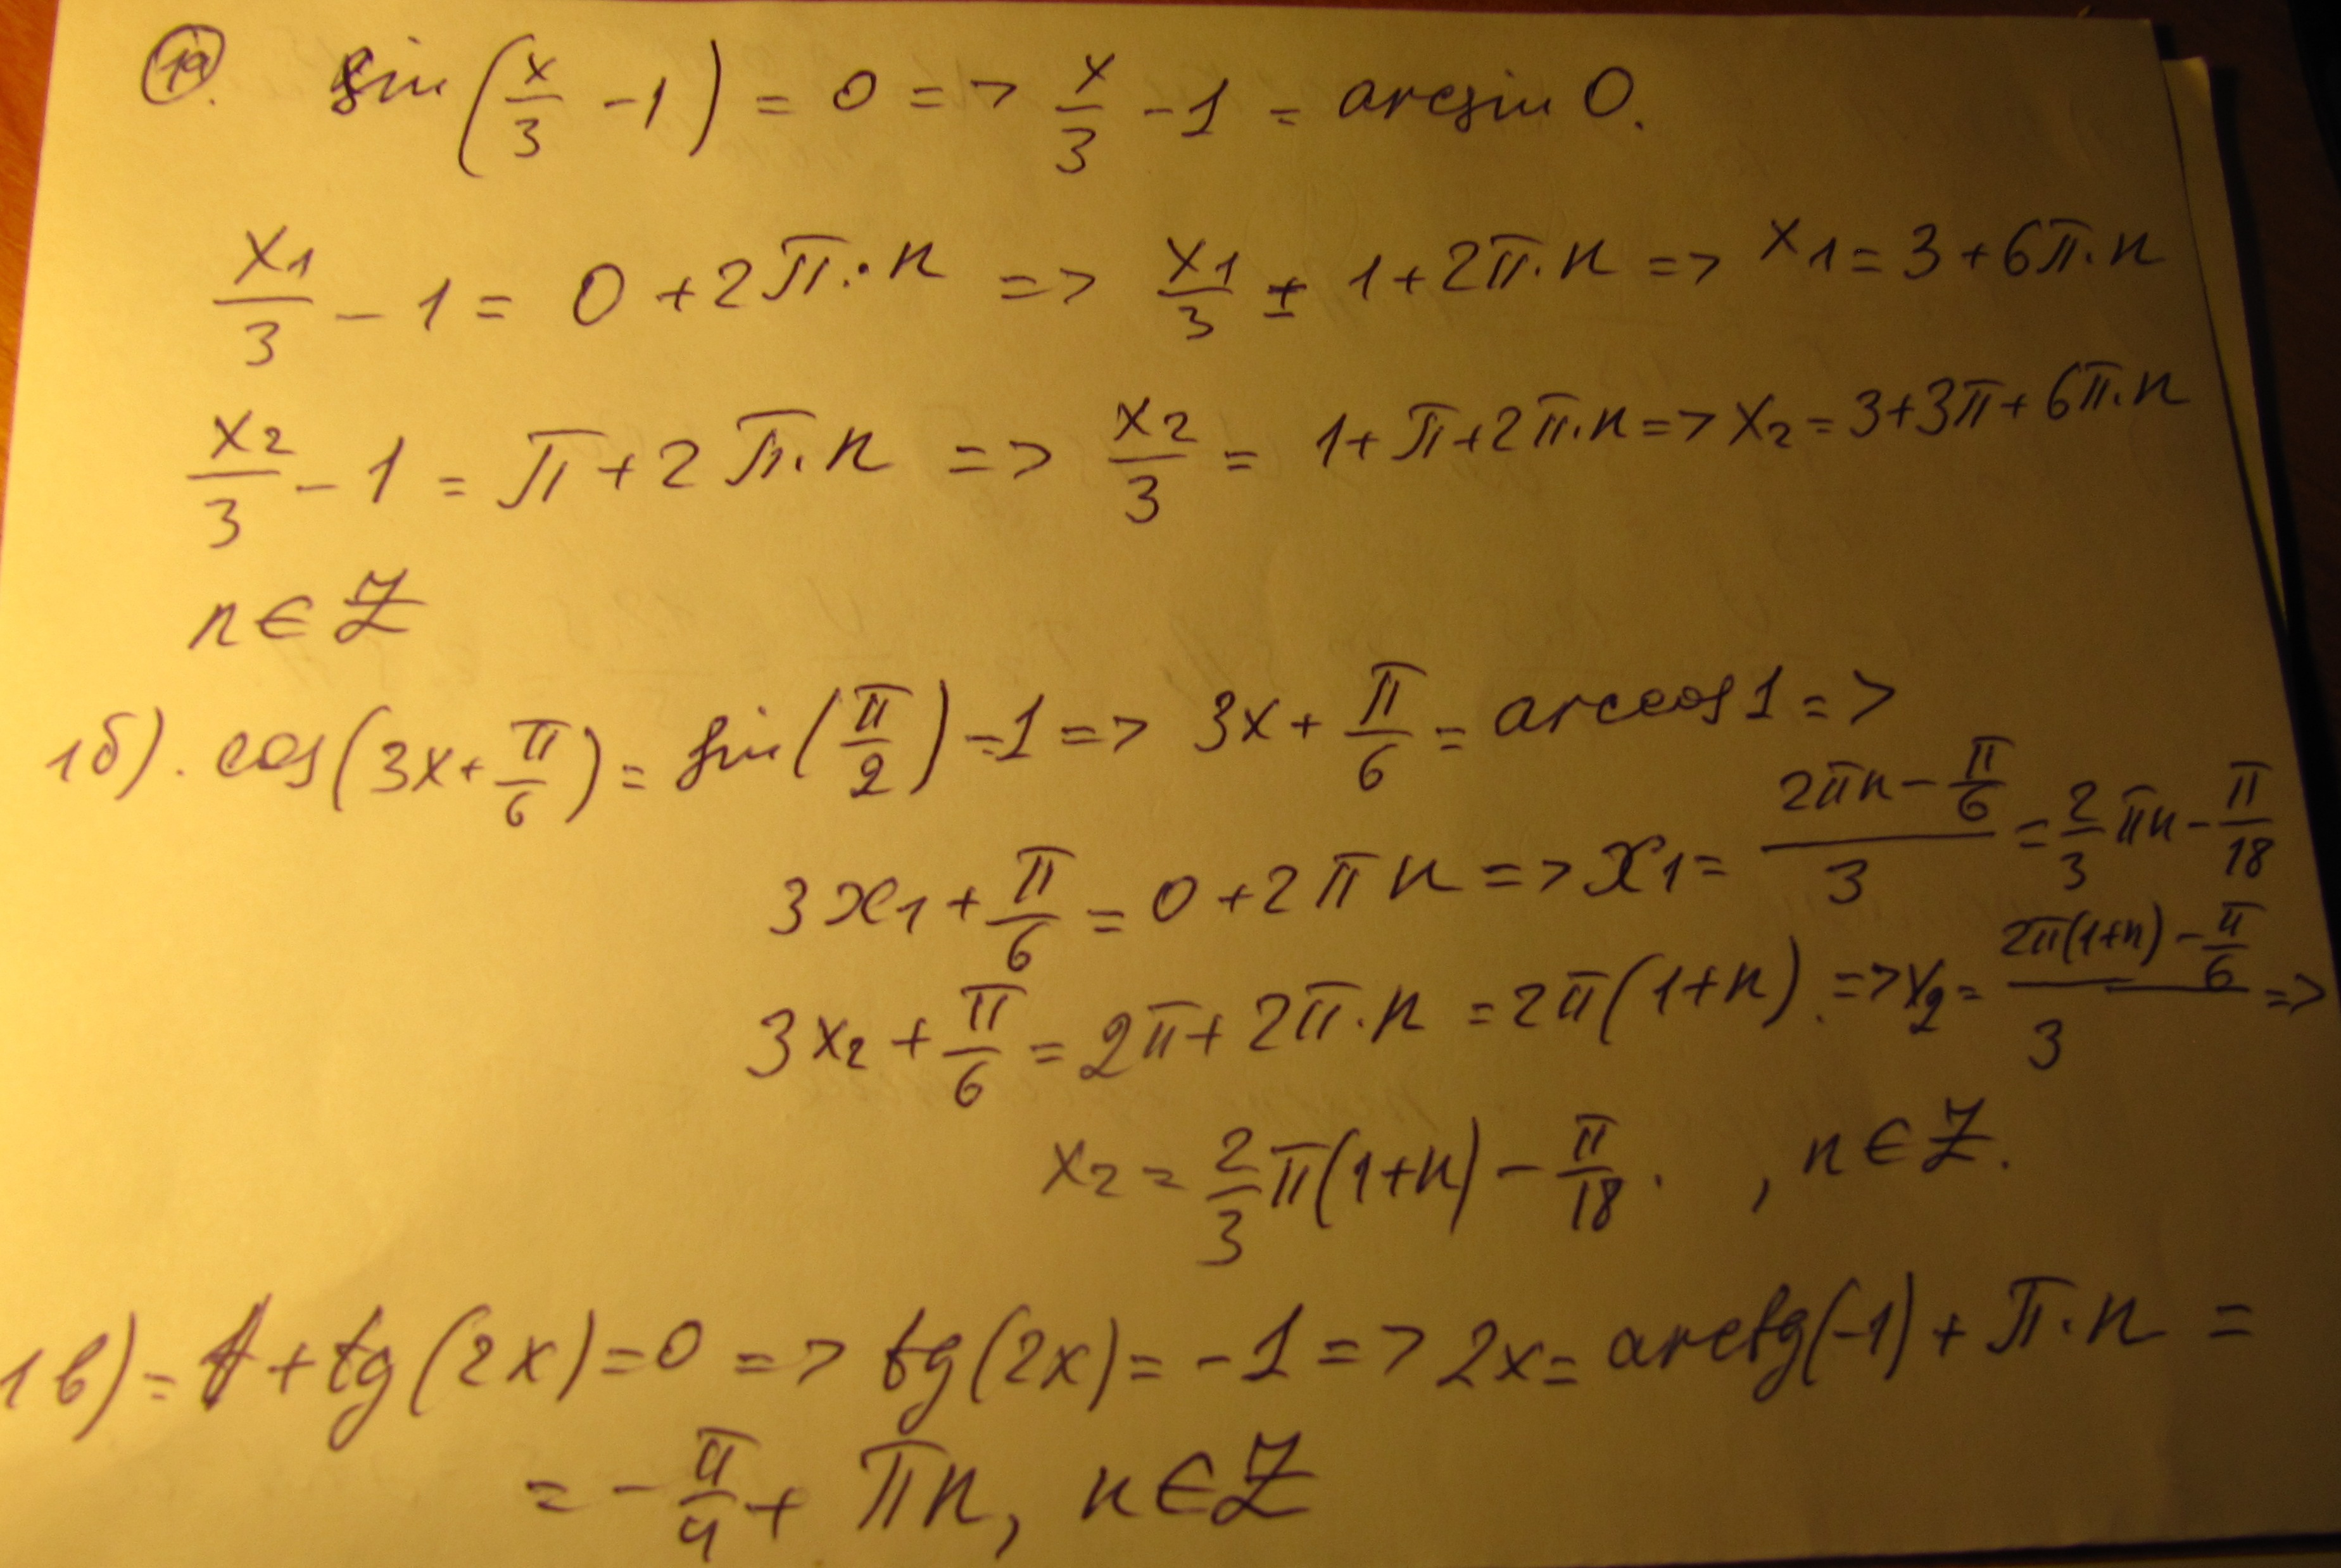 1а. sin(x/3 - 1) = 0 => x/3 - 1 = arcsin 0.
x₁/3 - 1 = 0 + 2π·n => x₁/3 = 1 + 2π·n => x₁ = 3 + 6π·n
x₂/3 - 1 = π + 2π·n => x₂/3 = 1 + π + 2π·n => x₂ = 3 + 3π + 6π·n
n ∈ Z
1б). cos(3x + π/6) = sin(π/2) = 1 => 3x + π/6 = arccos 1 =>
3x₁ + π/6 = 0 + 2πn => x₁ = (2πn - π/6)/3 = 2/3 πn - π/18
3x₂ + π/6 = 2π + 2π·n = 2π(1+n). => x₂ = (2π(1+n) - π/6)/3 =>
x₂ = 2/3 π(1+n) - π/18. , n ∈ Z.
1в) = 1 + tg(2x) = 0 => tg(2x) = -1 => 2x = arctg(-1) + π·n =
= -π/4 + πn, n ∈ Z